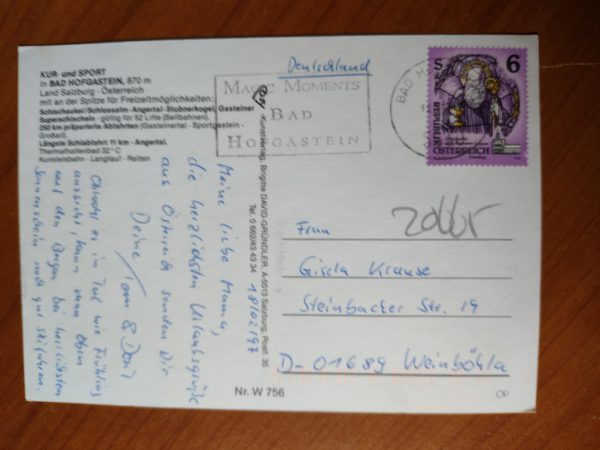 KUR- und SPORT
in BAD HOFGASTEIN, 870 m
Land Salzburg - Österreich
mit an der Spitze für Freizeitmöglichkeiten:
Schischaukel Schlossalm- Angertal- Stubnerkogel, Gasteiner
Superschischein - gültig für 52 Lifte (Seilbahnen).
250 km präparierte Abfahrten (Gasteinertal - Sportgastein -
Großarl).
Längste Schiabfahrt 11 km - Angertal.
Thermalhallenbad 32° C
Kunsteisbahn - Langlauf - Reiten
18/02/97
Meine liebe Mama,
die herzlichsten Urlaubsgrüße
aus Österreich senden Dir
Deine Tom &
Obwohl es im Tal wie Frühling
aussieht, kann man oben
auf den Bergen bei herrlichstem
Sonnenschein noch gut skifahren.
Kunstverlag, Brigitte DAVID-GRÜNDLER, A-5013 Salzburg, Postf. 35
Tel. 0 66243 43 34
Nr. W 756
Deutschland
MAGIC MOMENTS
BAD
HOFGASTEIN
BAD H
S 6
REPUBLIK
ÖSTERREICH
Frau
Gisela Krause
Steinbacher Str. 19
D-01689 Weinböhla
OP